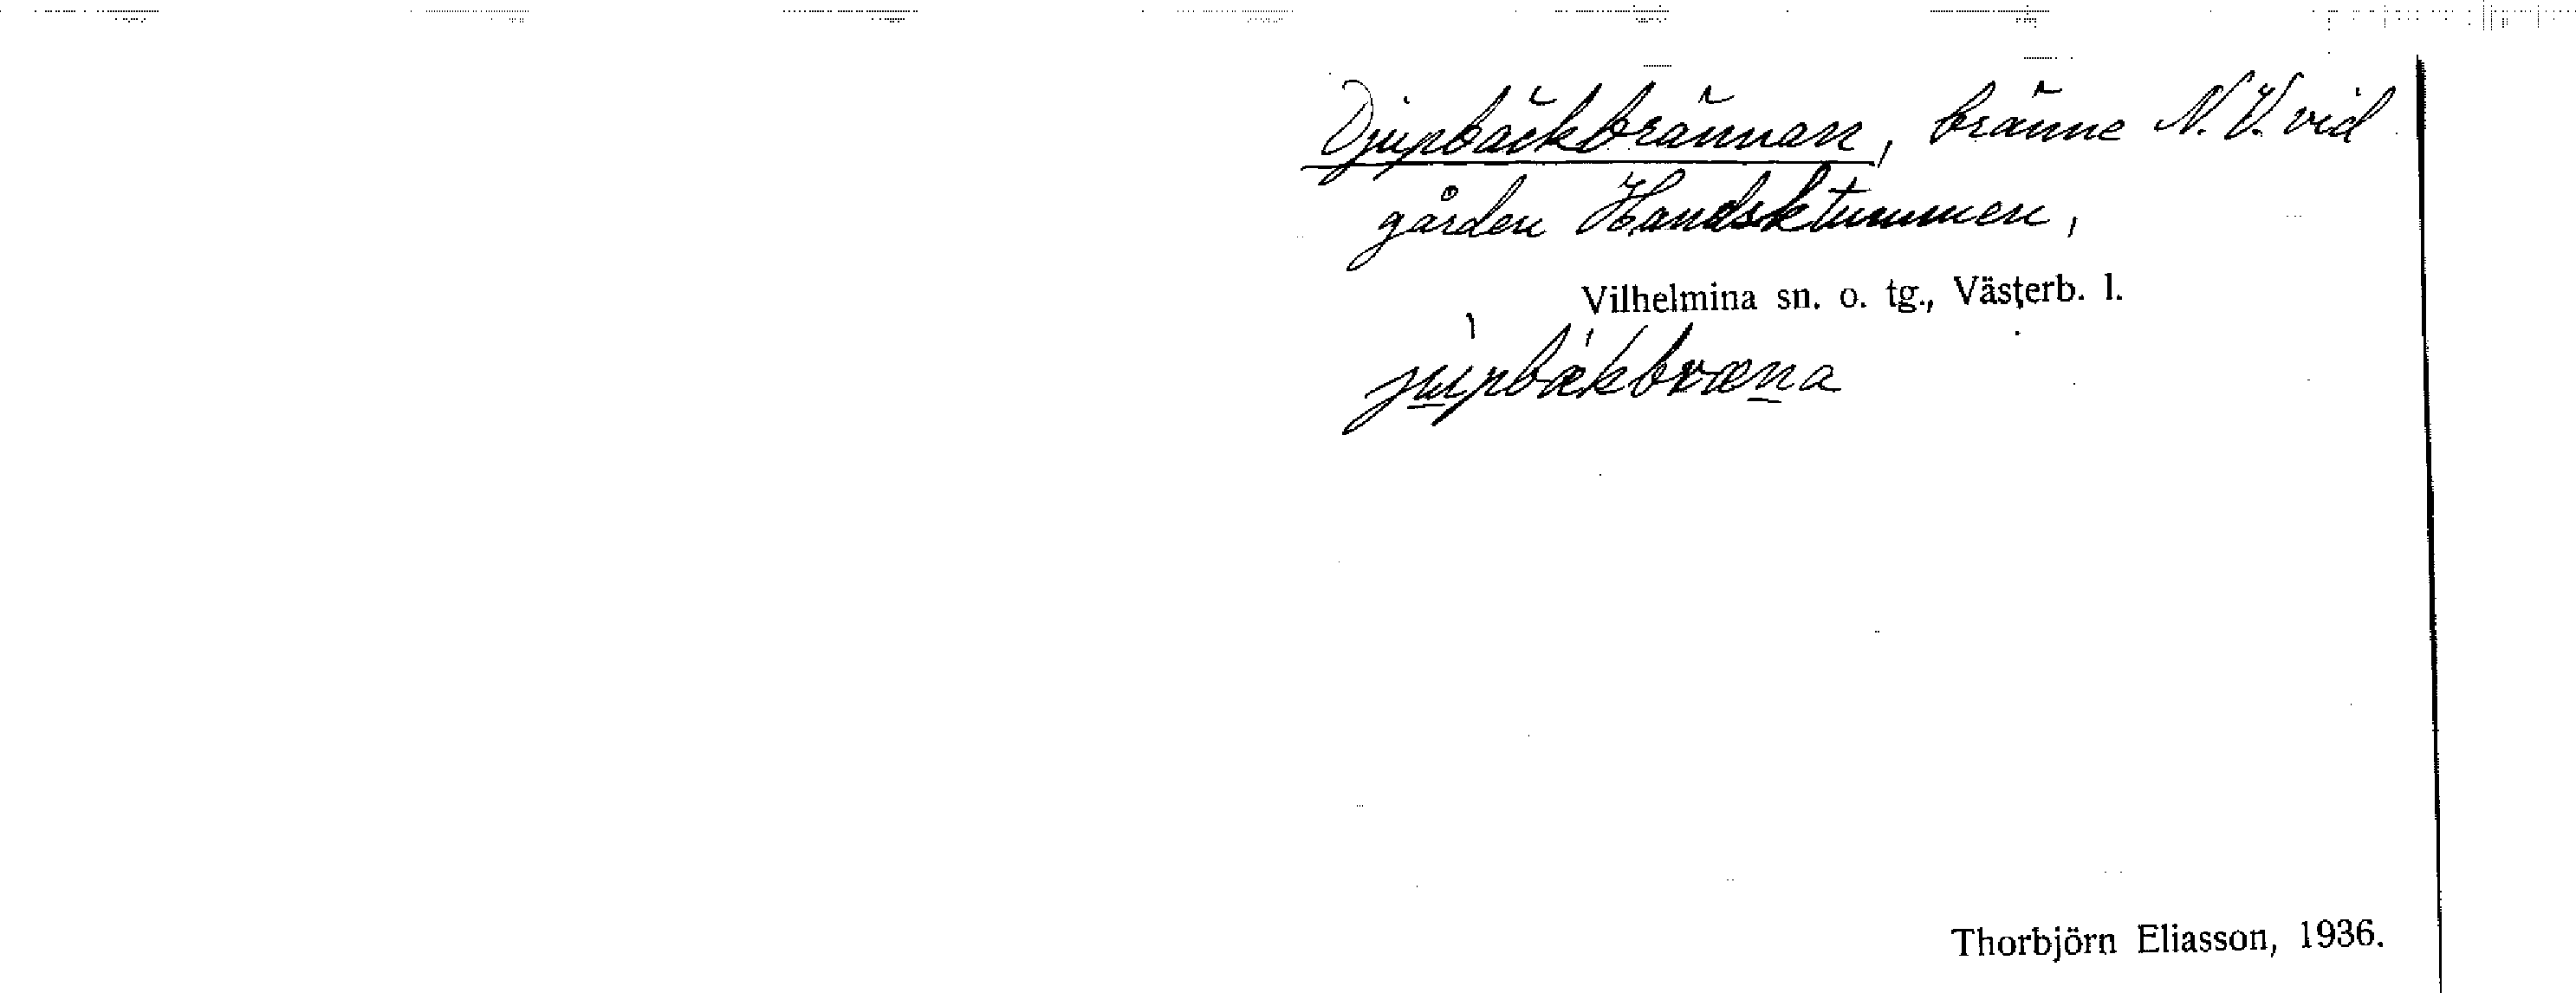 Djupbäckbrännan, bränne N.V. vid
gården Handsktummen,
Vilhelmina sn. o. tg., Västerb. l.
jupbækbræna
Thorbjörn Eliasson, 1936.